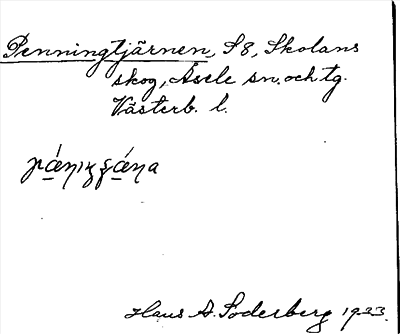 Penningtjärnen, S8, Skolans
skog, Åsele sn. och tg.
Västerb. l.
Hans A. Soderberg 1933.